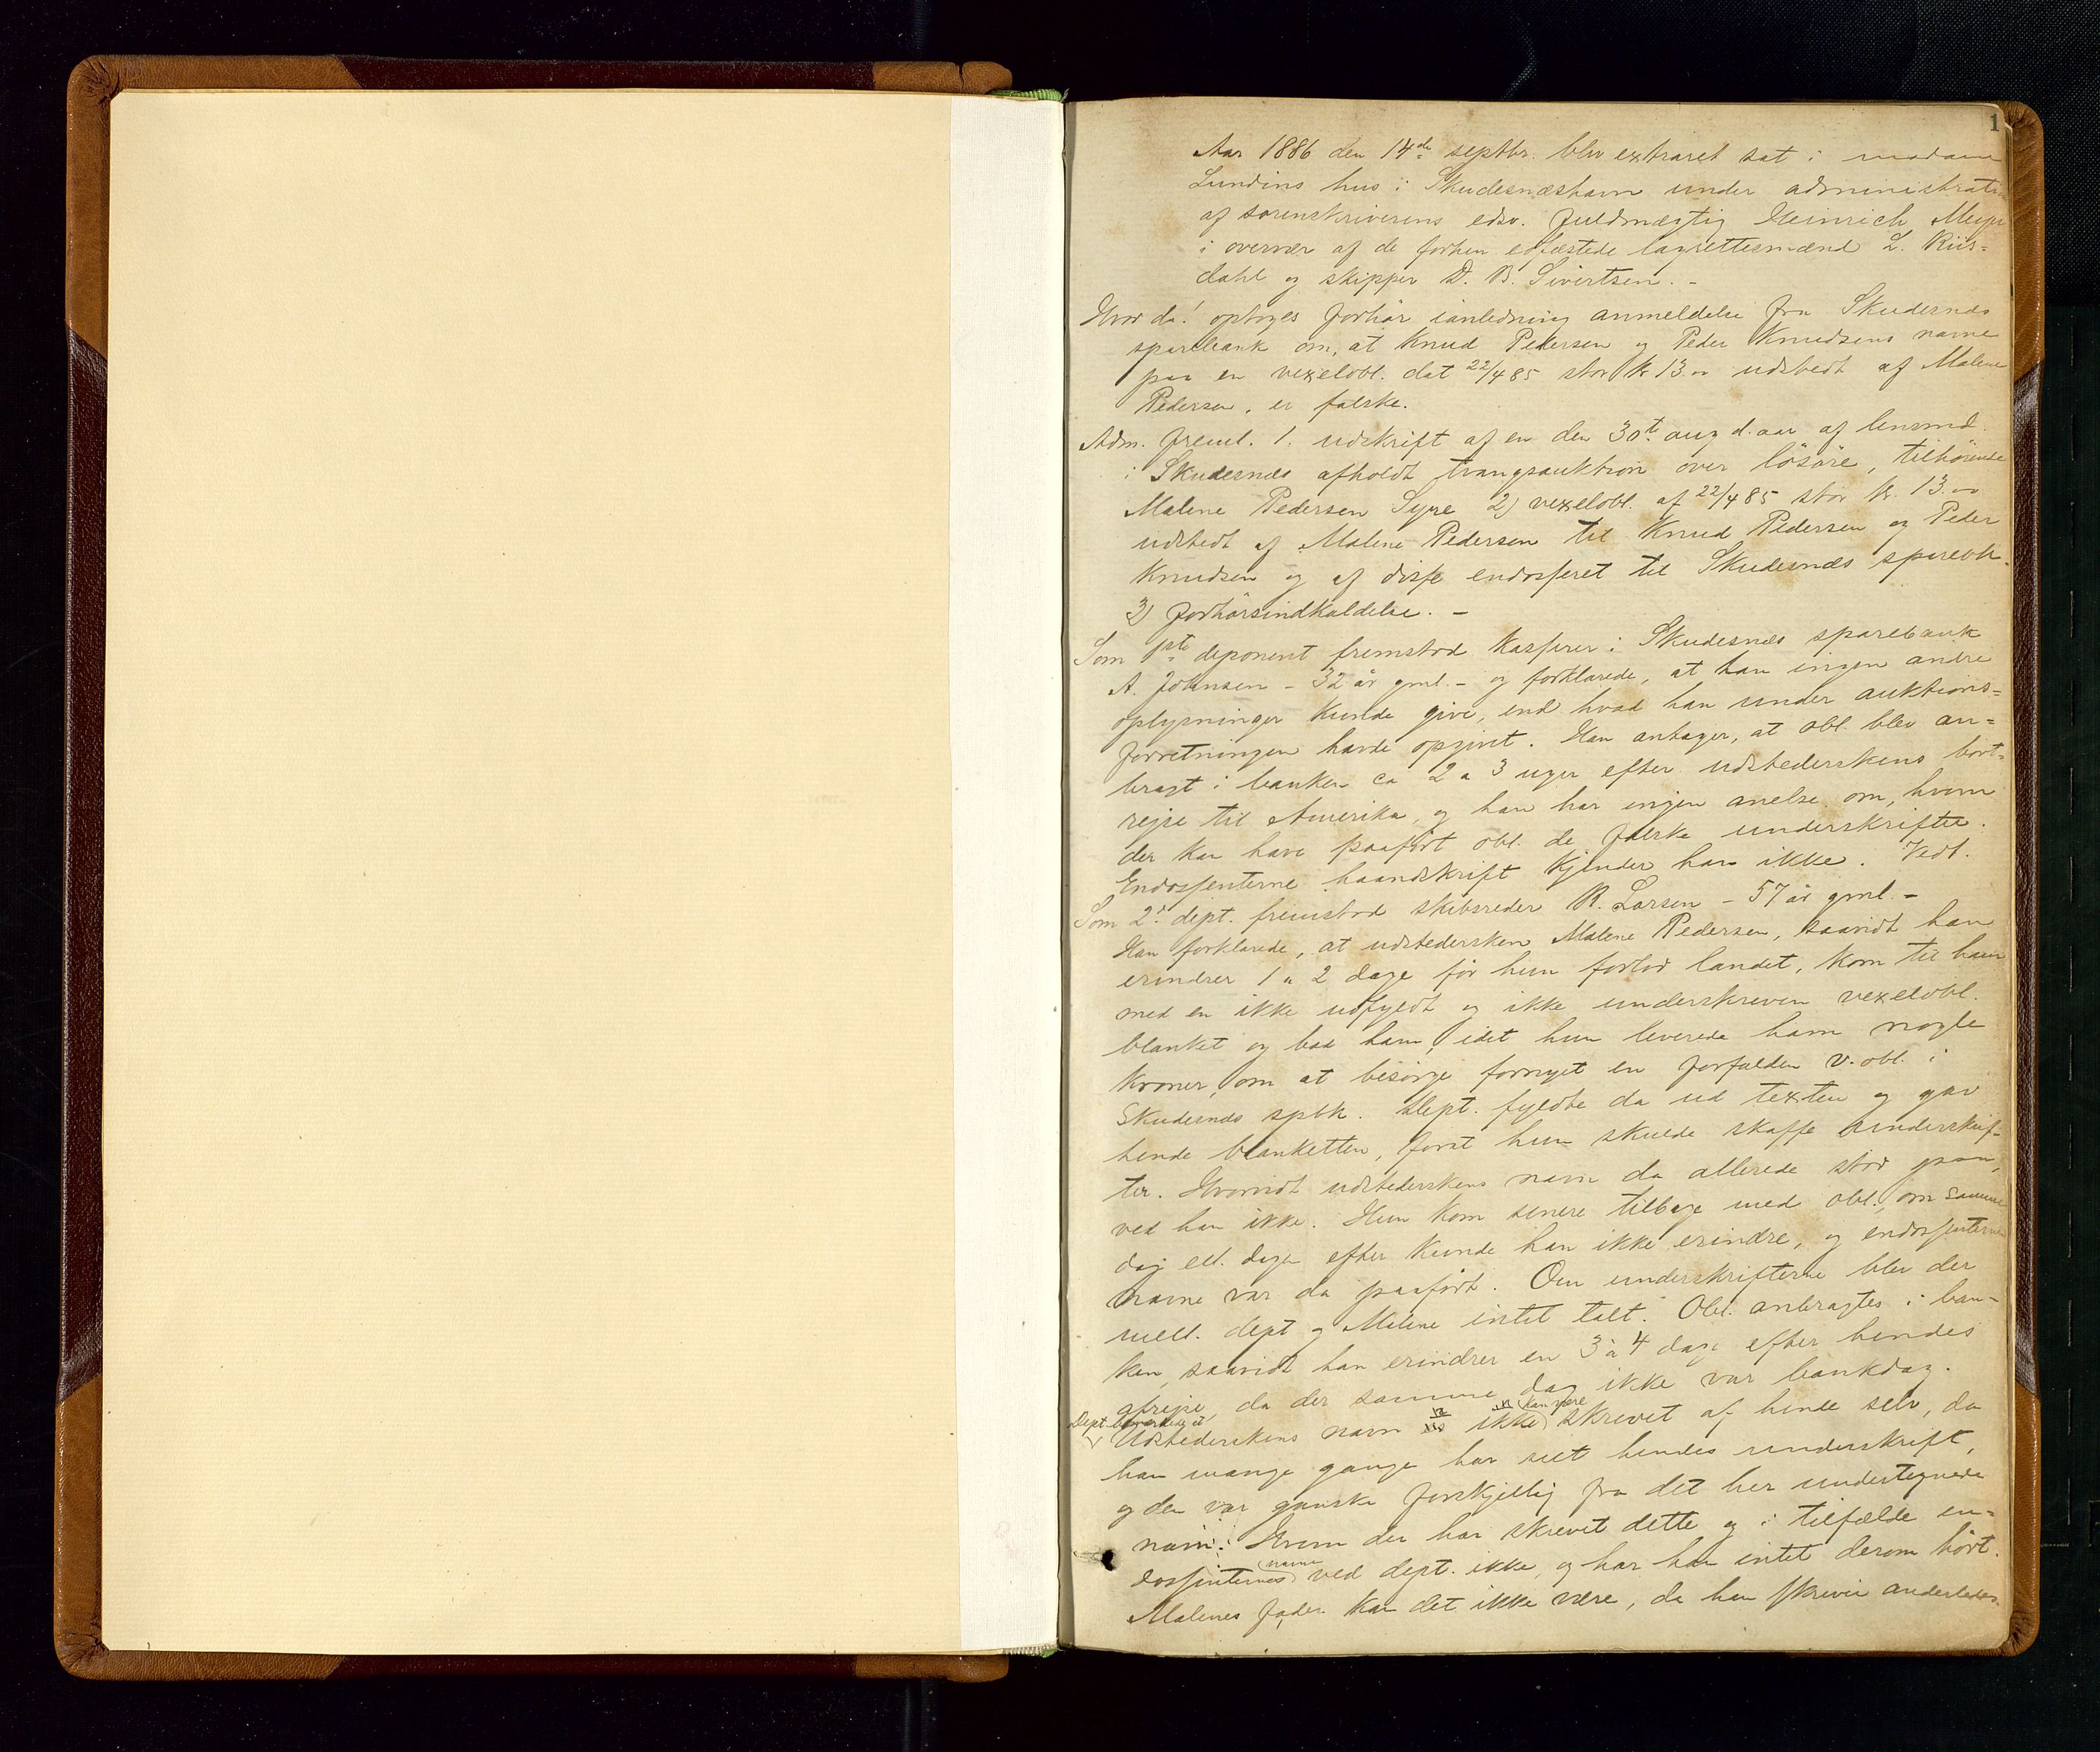 1
Aar 1886 den 14de septbr. blev extraret sat i madam
Lundins hus i Skudesnæshavn under administration
af sorenskriverens edsv. fuldmægtig Heinrich Meyer
i overvær af de forhen edfæstede lagrettesmænd L. Riis=
dahl og skipper D. B. Sivertsen. -
Hvor da! optoges forhör ianledning anmeldelse fra Skudesnæs
sparebank om, at Knud Pedersen og Peder Knudsens navne
paa en vexelobl. dat 22/4 85 stor kr 13.00 udstedt af Malene
Pedersen, er falske.
Adm. freml. 1. udskrift af en den 30te aug d. aar af lensmd.
i Skudesnæs afholdt tvangsauktion over lösöre, tilhörende
Malene Pedersen Syre 2) vexelobl. af 22/4 85 stor kr. 13.00
udstedt af Malene Pedersen til Knud Pedersen og Peder
Knudsen og af disse endosseret til Skudesnæs sparebk.
3) forhörsindkaldelse. -
Som 1ste deponent fremstod kasserer i Skudesnæs sparebank
A. Johnsen - 32 år gml. - og forklarede, at han ingen andre
oplysninger kunde give, end hvad han under auktions=
forretningen havde opgivet. Han antager, at obl. blev an=
bragt i banken ca 2 a 3 uger efter udstederskens bort=
rejse til Amerika, og han har ingen anelse om, hvem
der kan have paaført obl. de falske underskrifter.
Endossenterne haandskrift kjender han ikke. Vedt.
Som 2d dept. fremstod skibsreder R. Larsen - 57 år gml. -
Han forklarede, at udstedersken Malene Pedersen, saavidt han
erindrer 1 a 2 dage för hun forlod landet, kom til ham
med en ikke udfyldt og ikke underskreven vexelobl.
blanket og bad ham, idet hun leverede ham nogle
kroner, om at besörge fornyet en forfalden v. obl. i
Skudesnæs spbk. Dept. fyldte da ud texten og gav
hende blanketten, forat hun skulde skaffe underskrif-
ter. Hvorvidt udstederskens navn da allerede stod paa,
ved han ikke. Hun kom senere tilbage med obl., om samme
dag ell. dagen efter kunde han ikke erindre, og endossenternes
navne var da paafört. Om underskrifterne blev der
mell. dept og Malene intet talt. Obl. anbragtes i ban-
ken, saavidt han erindrer en 3 à 4 dage efter hendes
afrejse, da der samme dag ikke var bankdag.
Dept.
Udstederskens navn ikke kan være skrevet af hende selv, da
han mange gange har seet hendes underskrift,
og den var ganske forskjellig fra det her undertegnede
navn. Hvem der har skrevet dette og i tilfælde en=
dossenternes navne ved dept. ikke, og har han intet derom hört.
Malenes fader kan det ikke være, da han skriver anderledes.